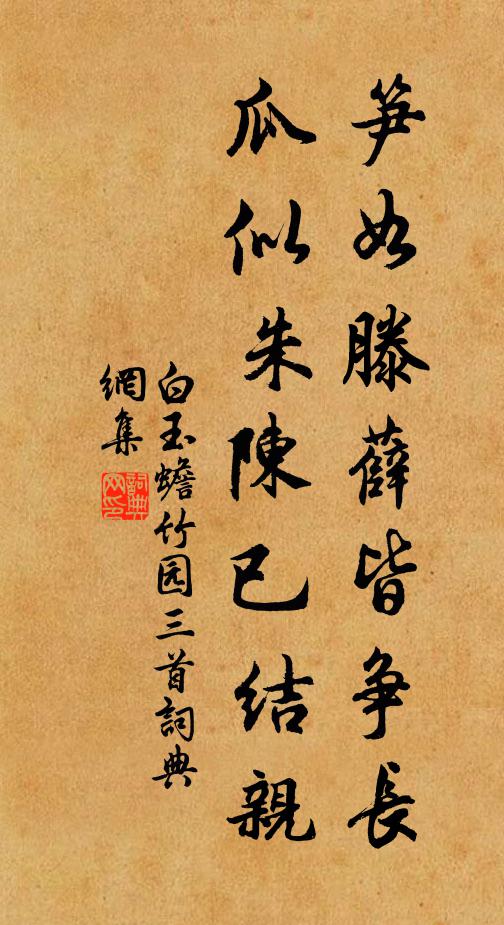 笋如滕薛皆争長
瓜似朱陳已結親
白玉蟾竹园三首詞典
網集
詞典
网印